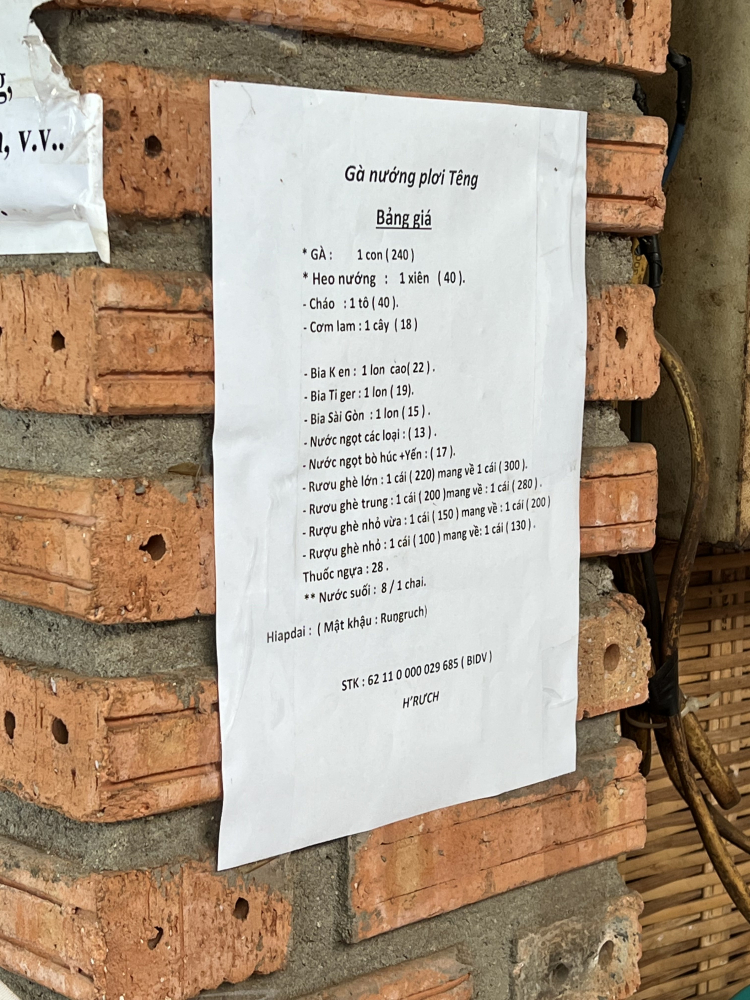 g,
, v.v..
Gà nướng plơi Têng
Bảng giá
* GÀ : 1 con ( 240 )
* Heo nướng : 1 xiên ( 40 ).
- Cháo : 1 tô ( 40 ).
- Cơm lam : 1 cây ( 18 )
- Bia K en : 1 lon cao( 22 ) .
- Bia Ti ger : 1 lon ( 19).
- Bia Sài Gòn : 1 lon ( 15 ) .
- Nước ngọt các loại : ( 13 ) .
- Nước ngọt bò húc +Yến : ( 17 ).
- Rươu ghè lớn : 1 cái ( 220) mang về 1 cái ( 300 ).
- Rươu ghè trung : 1 cái ( 200 )mang về : 1 cái ( 280 ) .
- Rượu ghè nhỏ vừa : 1 cái ( 150 ) mang về : 1 cái ( 200 )
- Rượu ghè nhỏ : 1 cái ( 100 ) mang về: 1 cái ( 130 ) .
Thuốc ngựa : 28 .
** Nước suối : 8 / 1 chai.
Hiapdai : ( Mật khậu : Rungruch)
STK : 62 11 0 000 029 685 ( BIDV )
H'RƯCH